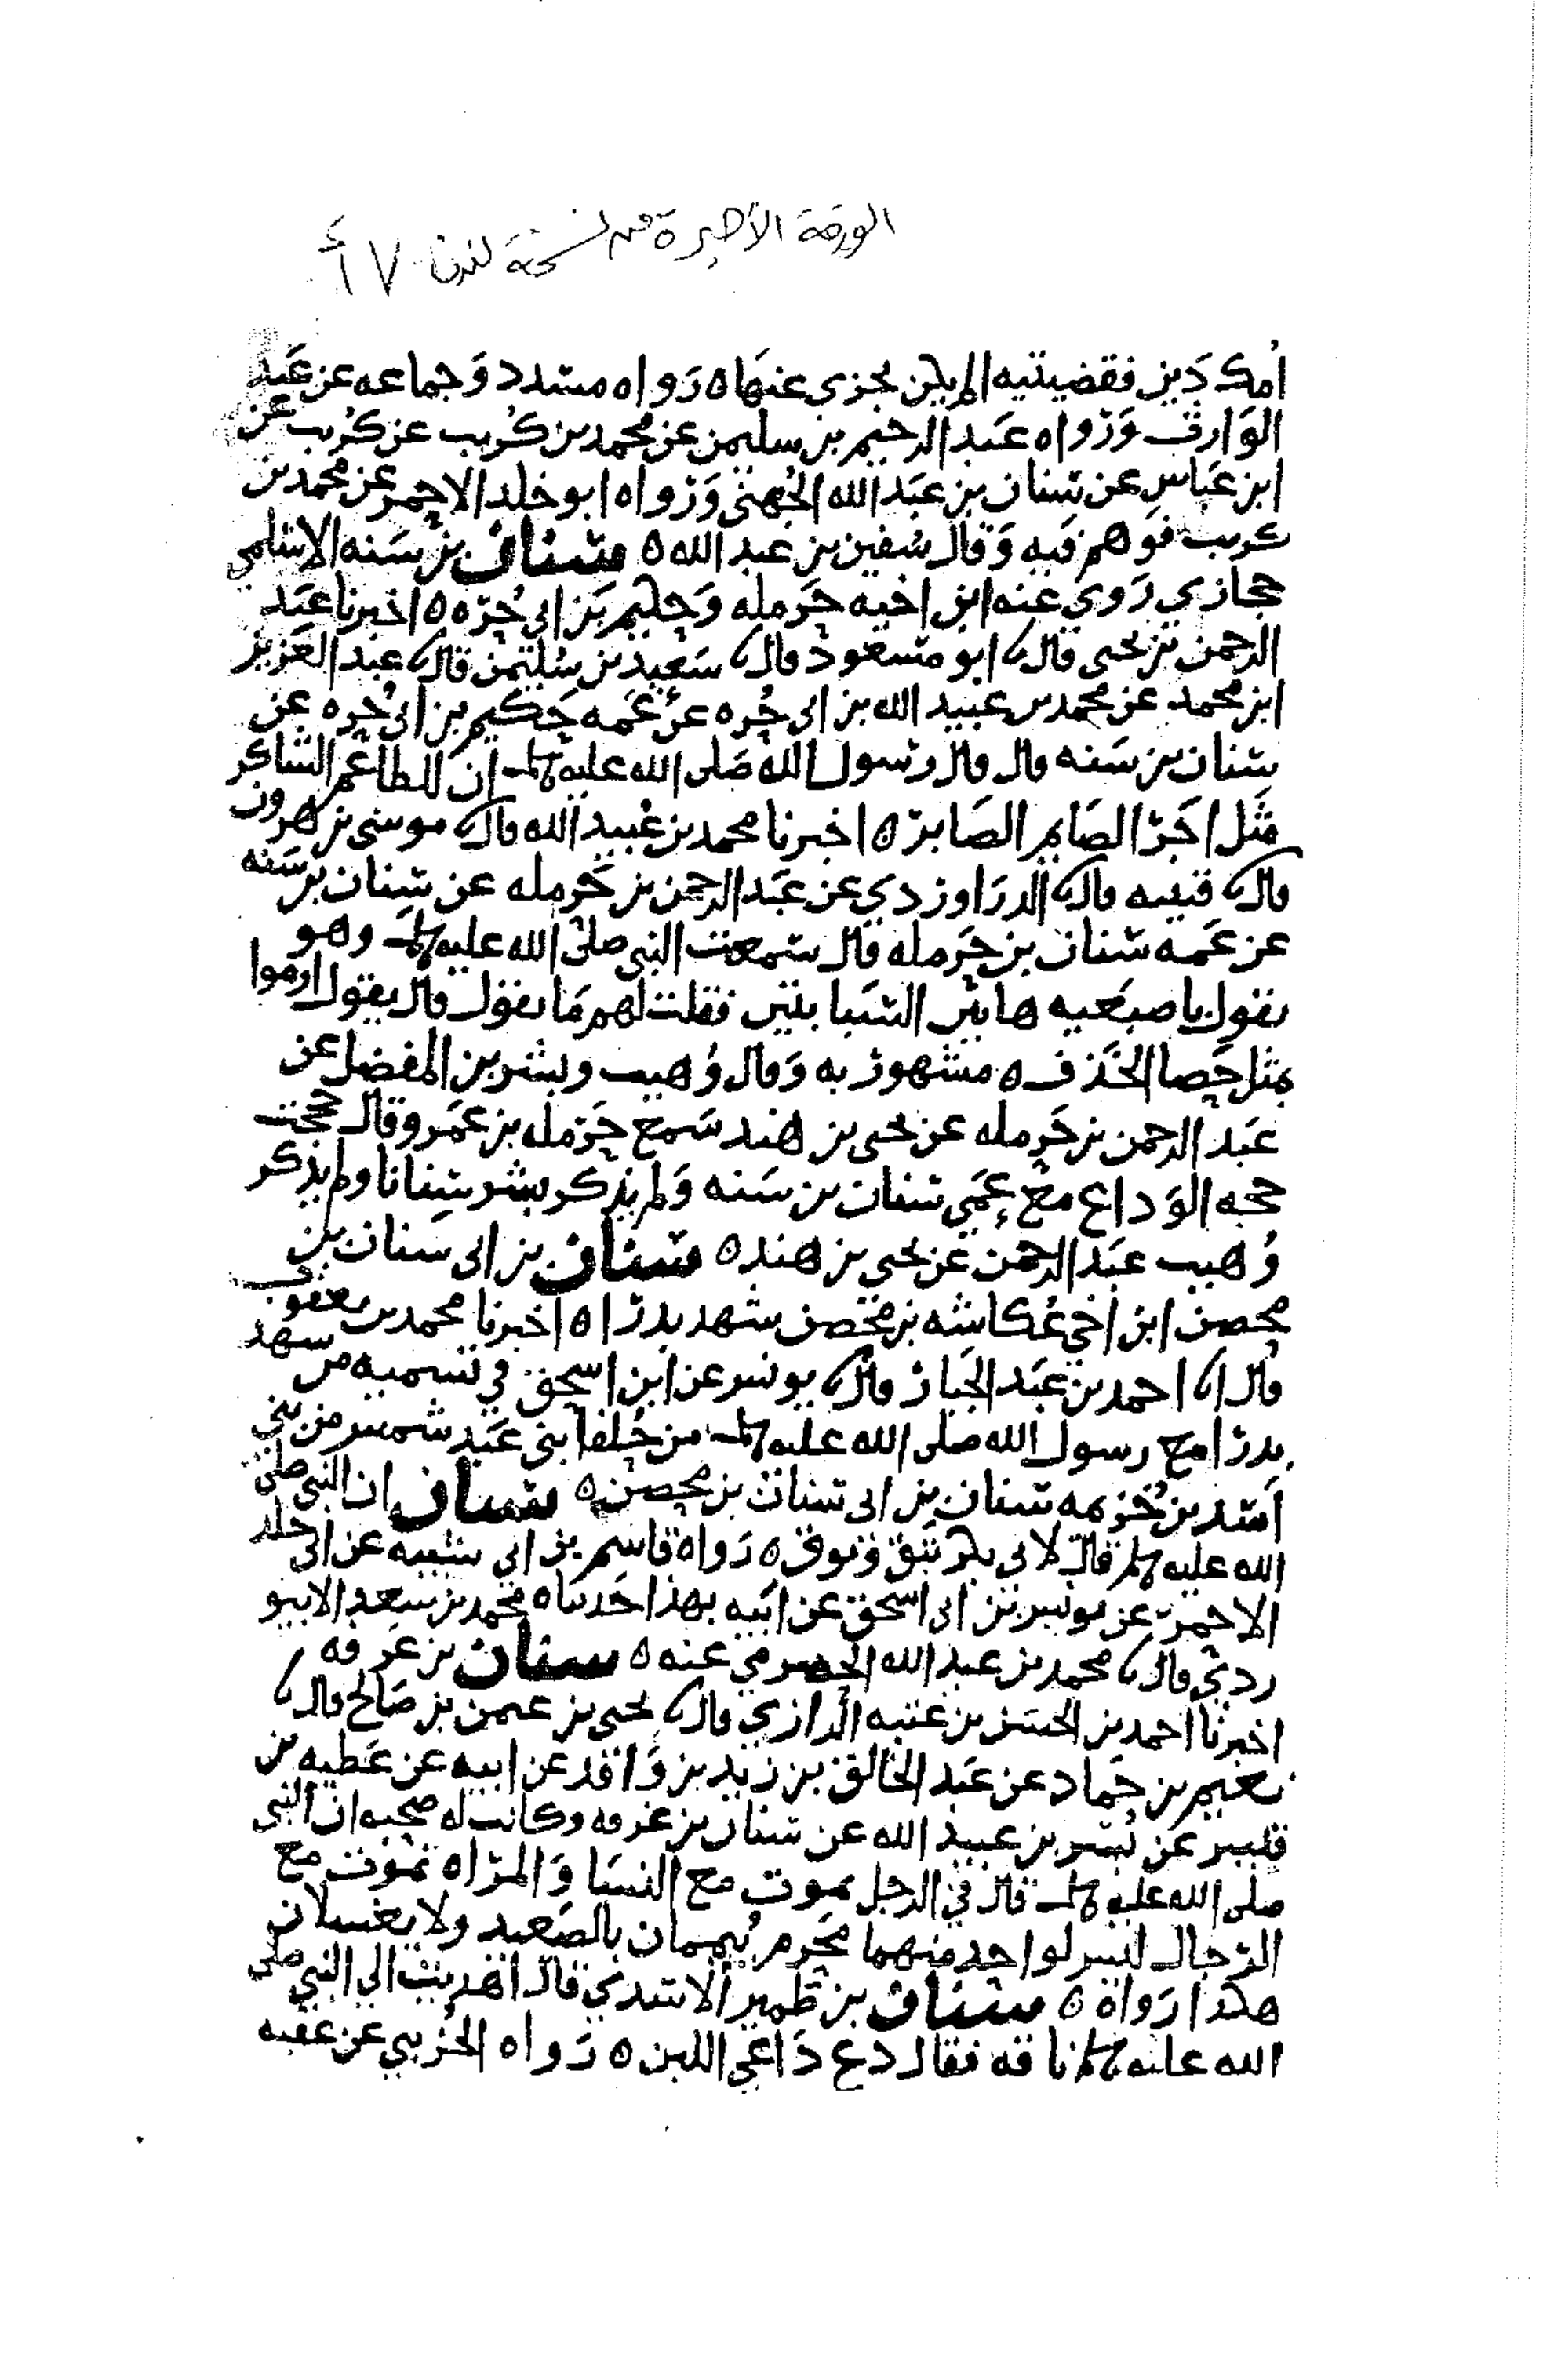 الورقة الأخيرة من نسخة لندن ٦٧ أ
امك دين فقضيتيه الم يكن يجزي عنها ه رواه مسدد وجماعه عن عبد
الوارث ورواه عبد الرحيم بن سليمن عن محمد بن كريب عن كريب عن
ابن عباس عن سنان بن عبد الله الجهني ورواه ابو خلد الاحمر عن محمد بن
كريب فوهم فيه وقال سفين بن عبد الله ه سنان بن سنه الاسلمي
حجازي روي عنه ابن اخيه حرمله وحكيم بن ابي حره ه اخبرنا عبد
الرحمن بن يحيى قال ابو مسعود قال سعيد بن سليمن قال عبد العزيز
ابن محمد عن محمد بن عبيد الله بن ابي حره عن عمه حكيم بن ابي حره عن
سنان بن سنه قال قال رسول الله صلى الله عليه ان للطاعم الشاكر
مثل اجر الصايم الصابر ه اخبرنا محمد بن عبيد الله قال موسى بن هرون
قال قتيبه قال الدراوردي عن عبد الرحمن بن حرمله عن سنان بن سنه
عن عمه سنان بن حرمله قال سمعت النبي صلى الله عليه وهو
يقول باصبعيه هاتين السبابتين فقلت لهم ما يقول قال يقول ارموا
بمثل حصا الخذف ه مشهور به وقال وهيب وبشر بن المفضل عن
عبد الرحمن بن حرمله عن يحيى بن هند سمع حرمله بن عمرو قال حججت
حجه الوداع مع عمي سنان بن سنه ولم يذكر بشر سنانا ولم يذكر
وهيب عبد الرحمن عن يحيى بن هند ه سنان بن ابي سنان بن
محصن ابن اخي عكاشه بن محصن شهد بدرا ه اخبرنا محمد بن يعقوب
قال احمد بن عبد الجبار قال يونس عن ابن اسحق في تسميه من شهد
بدرا مع رسول الله صلى الله عليه من حلفا بني عبد شمس من بني
اسد بن خزيمه سنان بن ابي سنان بن محصن ه سنان ان النبي صلى
الله عليه قال لابي بكر تنق وتوق ه رواه قاسم بن ابي شيبه عن ابي خلد
الاحمر عن يونس بن ابي اسحق عن ابيه بهذا حدثناه محمد بن سعد الابيو
ردي قال محمد بن عبد الله الحضرمي عنه ه سنان بن غرفه
اخبرنا احمد بن الحسن بن عتبه الرازي قال يحيى بن عثمن بن صالح قال
نعيم بن حماد عن عبد الخالق بن زيد بن واقد عن ابيه عن عطيه بن
قيس عن بسر بن عبيد الله عن سنان بن غرفه وكانت له صحبه ان النبي
صلى الله عليه قال في الرجل يموت مع النسا والمراه تموت مع
الرجال ليس لواحد منهما محرم ييممان بالصعيد ولا يغسلان
هكذا رواه ه سنان بن ظهير الاسدي قال اهديت الي النبي صلى
الله عليه ناقه فقال دع داعي اللبن ه رواه الخريبي عن عقبه